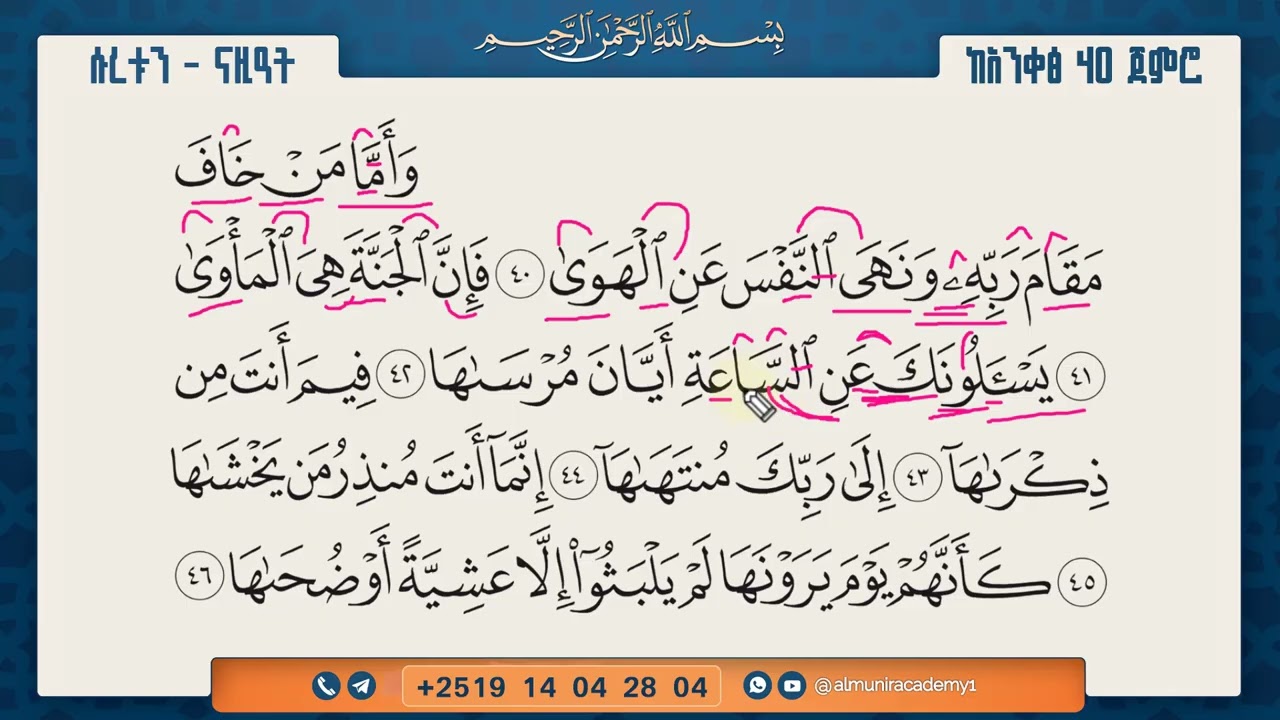 بِسْمِ ٱللَّهِ ٱلرَّحْمَٰنِ ٱلرَّحِيمِ
ሱረቱን - ናዚዓት
ከአንቀፅ 40 ጀምሮ
وَأَمَّا مَنْ خَافَ
مَقَامَ رَبِّهِۦ وَنَهَى ٱلنَّفْسَ عَنِ ٱلْهَوَىٰ ٤٠ فَإِنَّ ٱلْجَنَّةَ هِىَ ٱلْمَأْوَىٰ
٤١ يَسْـَٔلُونَكَ عَنِ ٱلسَّاعَةِ أَيَّانَ مُرْسَىٰهَا ٤٢ فِيمَ أَنتَ مِن
ذِكْرَىٰهَآ ٤٣ إِلَىٰ رَبِّكَ مُنتَهَىٰهَآ ٤٤ إِنَّمَآ أَنتَ مُنذِرُ مَن يَخْشَىٰهَا
٤٥ كَأَنَّهُمْ يَوْمَ يَرَوْنَهَا لَمْ يَلْبَثُوٓا۟ إِلَّا عَشِيَّةً أَوْ ضُحَىٰهَا ٤٦
+2519 14 04 28 04 @almuniracademy1